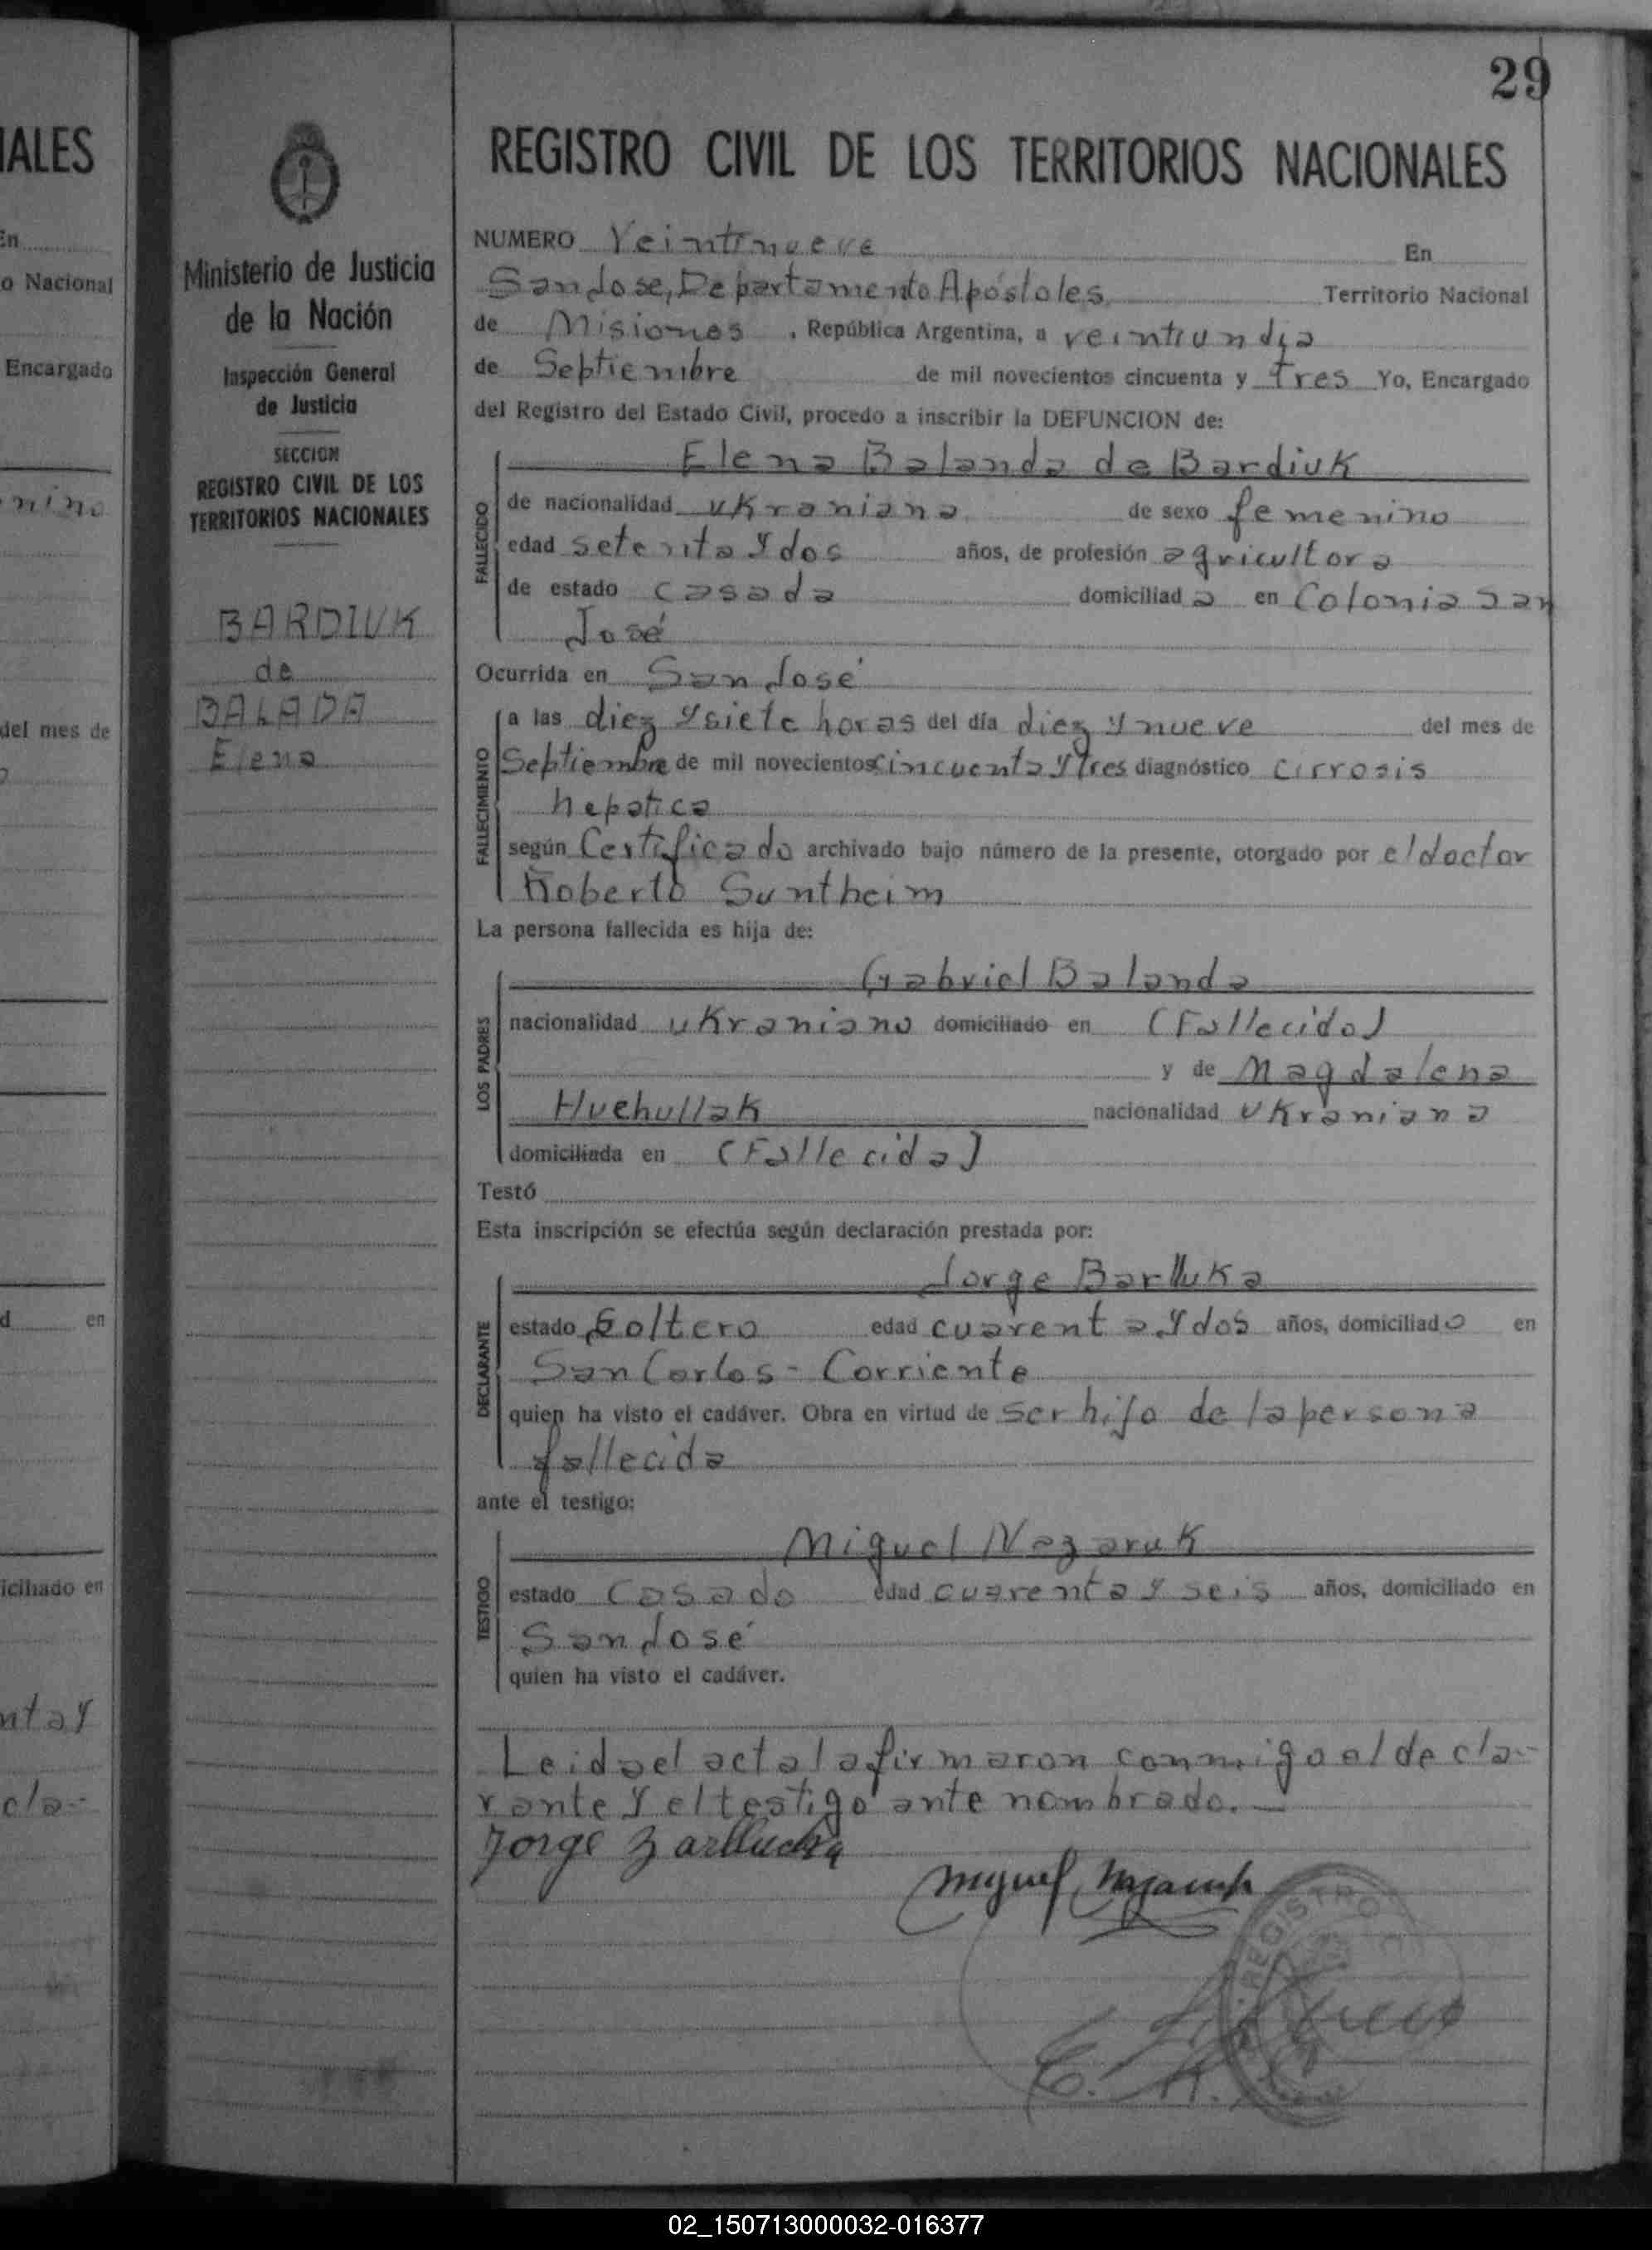 29
REGISTRO CIVIL DE LOS TERRITORIOS NACIONALES
IALES
En
o Nacional
Encargado
nino
del mes de
d en
iciliado en
nta y
cla-
Ministerio de Justicia
de la Nación
Inspección General
de Justicia
SECCION
REGISTRO CIVIL DE LOS
TERRITORIOS NACIONALES
BARDIUK
de
BALADA
Elena
NUMERO Veintinueve En
San Jose, Departamento Apóstoles Territorio Nacional
de Misiones , República Argentina, a veintiun dia
de Septiembre de mil novecientos cincuenta y tres Yo, Encargado
del Registro del Estado Civil, procedo a inscribir la DEFUNCION de:
FALLECIDO
Elena Balanda de Bardiuk
de nacionalidad ukraniana de sexo femenino
edad setenta y dos años, de profesión agricultora
de estado casada domiciliada en Colonia San
José
Ocurrida en San José
FALLECIMIENTO
a las diez y siete horas del día diez y nueve del mes de
Septiembre de mil novecientos cincuenta y tres diagnóstico cirrosis
hepatica
según Certificado archivado bajo número de la presente, otorgado por el doctor
Roberto Suntheim
La persona fallecida es hija de:
LOS PADRES
Gabriel Balanda
nacionalidad ukraniano domiciliado en (Fallecido)
y de Magdalena
Huchullak nacionalidad ukraniana
domiciliada en (Fallecida)
Testó
Esta inscripción se efectúa según declaración prestada por:
DECLARANTE
Jorge Barlluka
estado Soltero edad cuarenta y dos años, domiciliado en
San Carlos - Corriente
quien ha visto el cadáver. Obra en virtud de ser hijo de la persona
fallecida
ante el testigo:
TESTIGO
Miguel Nazaruk
estado Casado edad cuarenta y seis años, domiciliado en
San José
quien ha visto el cadáver.
Leida el acta la firmaron conmigo el decla-
rante y el testigo ante nombrado.
Jorge Barllucka
Miguel Nazaruk
REGISTRO
02_150713000032-016377